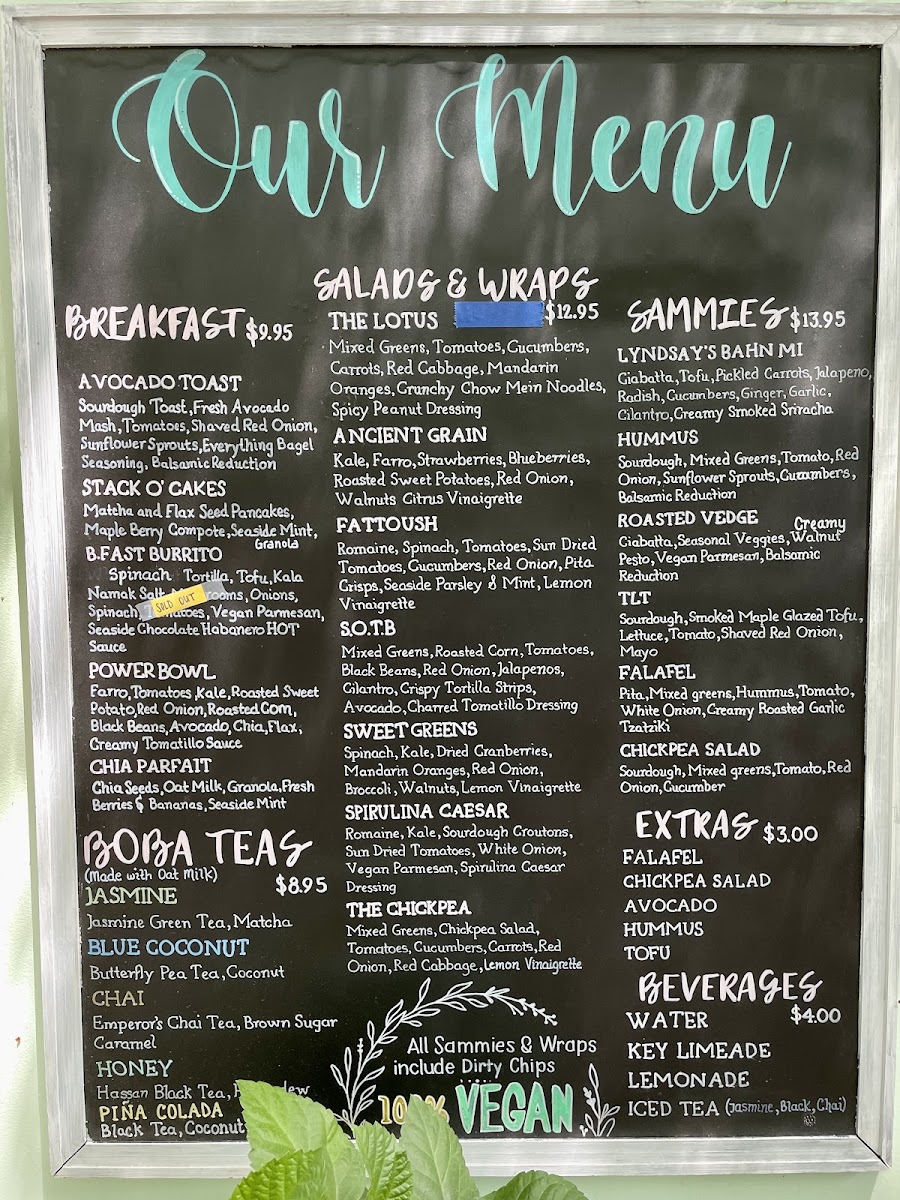 Our Menu
BREAKFAST $9.95
AVOCADO TOAST
Sourdough Toast, Fresh Avocado
Mash, Tomatoes, Shaved Red Onion,
Sunflower Sprouts, Everything Bagel
Seasoning, Balsamic Reduction
STACK O' CAKES
Matcha and Flax Seed Pancakes,
Maple Berry Compote, Seaside Mint,
Granola
B.FAST BURRITO
Spinach Tortilla, Tofu, Kala
Namak Salt, Onions,
SOLD OUT
Spinach, Vegan Parmesan,
Seaside Chocolate Habanero HOT
Sauce
POWER BOWL
Farro, Tomatoes, Kale, Roasted Sweet
Potato, Red Onion, Roasted Corn,
Black Beans, Avocado, Chia, Flax,
Creamy Tomatillo Sauce
CHIA PARFAIT
Chia Seeds, Oat Milk, Granola, Fresh
Berries & Bananas, Seaside Mint
BOBA TEAS
(Made with Oat Milk) $8.95
JASMINE
Jasmine Green Tea, Matcha
BLUE COCONUT
Butterfly Pea Tea, Coconut
CHAI
Emperor's Chai Tea, Brown Sugar
Caramel
HONEY
Hassan Black Tea,
PIÑA COLADA
Black Tea, Coconut
SALADS & WRAPS
THE LOTUS $12.95
Mixed Greens, Tomatoes, Cucumbers,
Carrots, Red Cabbage, Mandarin
Oranges, Crunchy Chow Mein Noodles,
Spicy Peanut Dressing
ANCIENT GRAIN
Kale, Farro, Strawberries, Blueberries,
Roasted Sweet Potatoes, Red Onion,
Walnuts Citrus Vinaigrette
FATTOUSH
Romaine, Spinach, Tomatoes, Sun Dried
Tomatoes, Cucumbers, Red Onion, Pita
Crisps, Seaside Parsley & Mint, Lemon
Vinaigrette
S.O.T.B
Mixed Greens, Roasted Corn, Tomatoes,
Black Beans, Red Onion, Jalapenos,
Cilantro, Crispy Tortilla Strips,
Avocado, Charred Tomatillo Dressing
SWEET GREENS
Spinach, Kale, Dried Cranberries,
Mandarin Oranges, Red Onion,
Broccoli, Walnuts, Lemon Vinaigrette
SPIRULINA CAESAR
Romaine, Kale, Sourdough Croutons,
Sun Dried Tomatoes, White Onion,
Vegan Parmesan, Spirulina Caesar
Dressing
THE CHICKPEA
Mixed Greens, Chickpea Salad,
Tomatoes, Cucumbers, Carrots, Red
Onion, Red Cabbage, Lemon Vinaigrette
All Sammies & Wraps
include Dirty Chips
100% VEGAN
SAMMIES $13.95
LYNDSAY'S BAHN MI
Ciabatta, Tofu, Pickled Carrots, Jalapeno,
Radish, Cucumbers, Ginger, Garlic,
Cilantro, Creamy Smoked Sriracha
HUMMUS
Sourdough, Mixed Greens, Tomato, Red
Onion, Sunflower Sprouts, Cucumbers,
Balsamic Reduction
ROASTED VEDGE
Ciabatta, Seasonal Veggies, Creamy Walnut
Pesto, Vegan Parmesan, Balsamic
Reduction
TLT
Sourdough, Smoked Maple Glazed Tofu,
Lettuce, Tomato, Shaved Red Onion,
Mayo
FALAFEL
Pita, Mixed greens, Hummus, Tomato,
White Onion, Creamy Roasted Garlic
Tzatziki
CHICKPEA SALAD
Sourdough, Mixed greens, Tomato, Red
Onion, Cucumber
EXTRAS $3.00
FALAFEL
CHICKPEA SALAD
AVOCADO
HUMMUS
TOFU
BEVERAGES
WATER $4.00
KEY LIMEADE
LEMONADE
ICED TEA (Jasmine, Black, Chai)